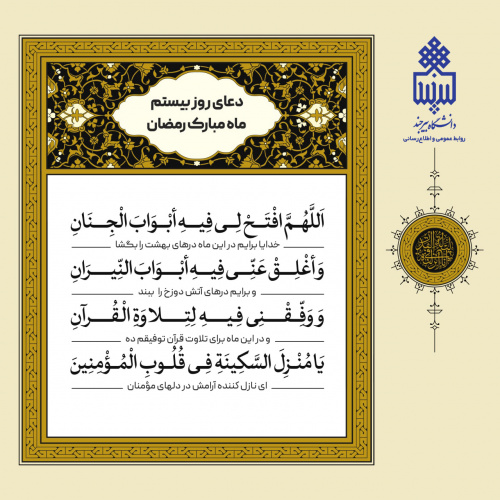 دعای روز بیستم
ماه مبارک رمضان
اَللَّهُمَّ افْتَحْ لِي فِيهِ أَبْوَابَ الْجِنَانِ
خدایا برایم در این ماه درهای بهشت را بگشا
وَ أَغْلِقْ عَنِّي فِيهِ أَبْوَابَ النِّيرَانِ
و برایم درهای آتش دوزخ را ببند
وَ وَفِّقْنِي فِيهِ لِتِلاوَةِ الْقُرْآنِ
و در این ماه برای تلاوت قرآن توفیقم ده
يَا مُنْزِلَ السَّكِينَةِ فِي قُلُوبِ الْمُؤْمِنِينَ
ای نازل کننده آرامش در دلهای مؤمنان
دانشگاه بیرجند
روابط عمومی و اطلاع‌رسانی